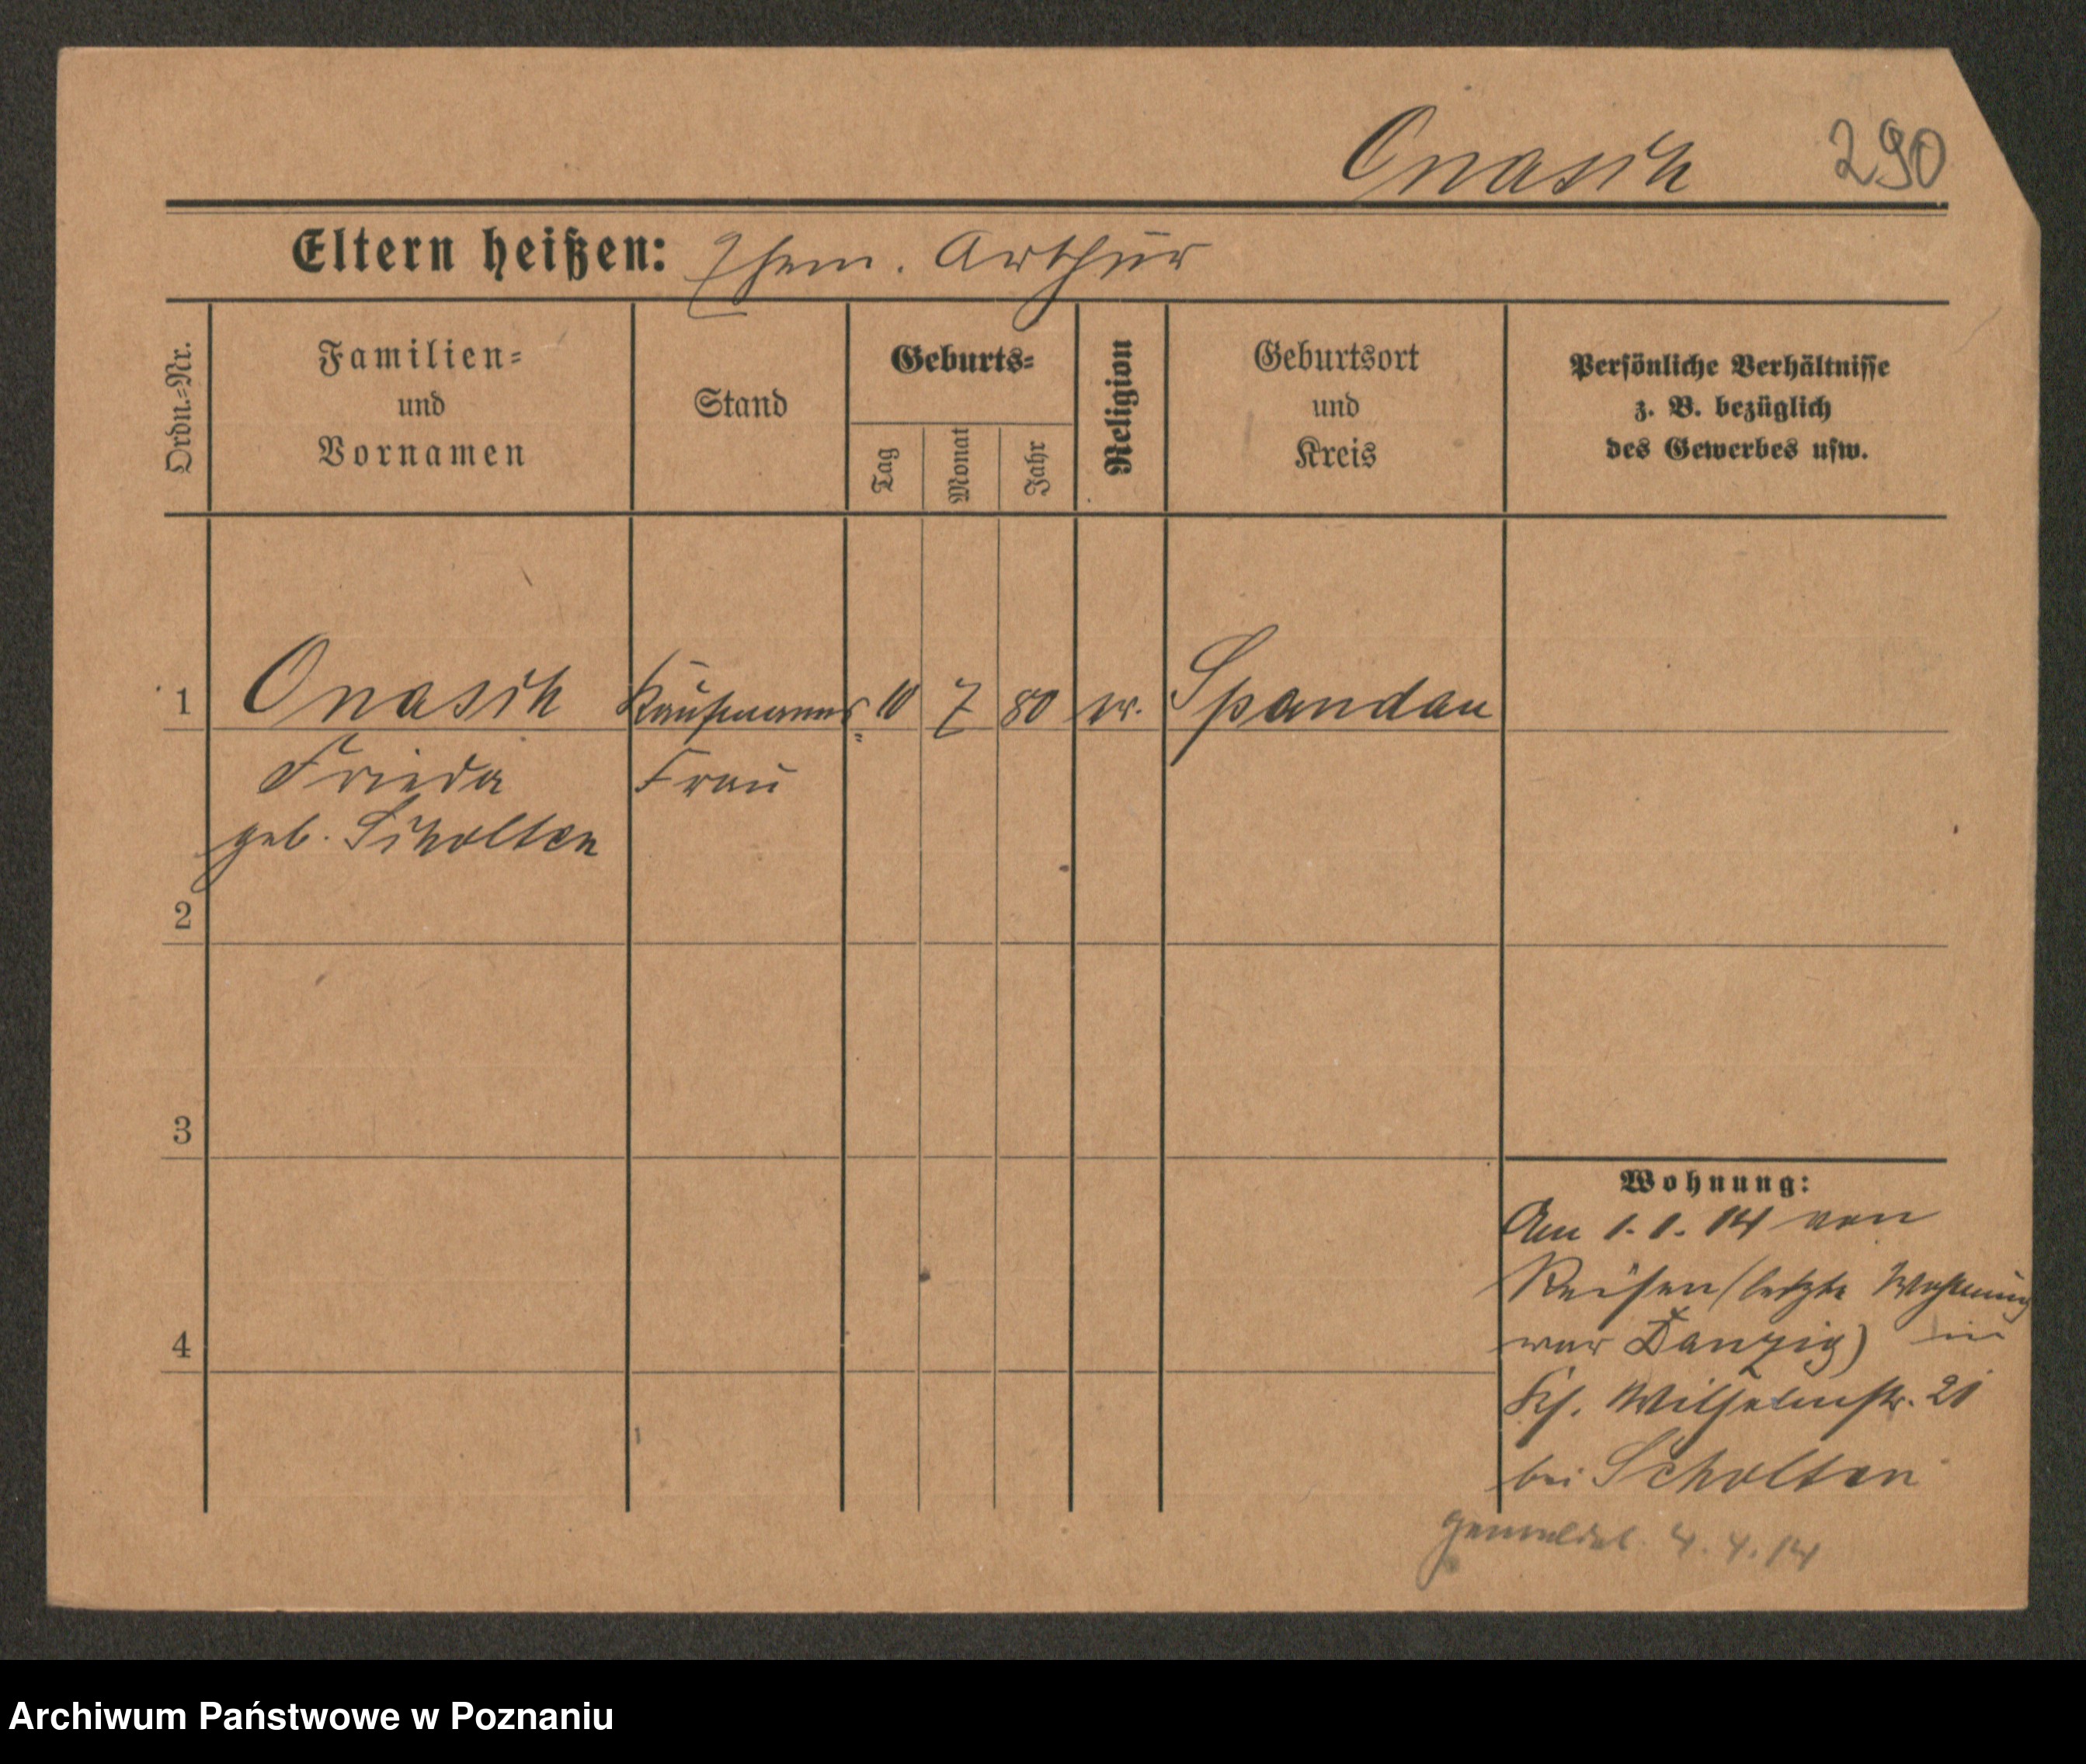 Onasch 290
Eltern heißen: Ehem. Arthur
Ordn.-Nr.
Familien-
und
Vornamen
Stand
Geburts-
Tag
Monat
Jahr
Religion
Geburtsort
und
Kreis
Persönliche Verhältnisse
z. B. bezüglich
des Gewerbes usw.
1 Onasch Kaufmanns 10 7 80 ev. Spandau
Frieda Frau
geb. Scholten
2
3
4
Wohnung:
Am 1.1.14 von
Reisen (letzte Wohnung
war Danzig) in
Wilhelmstr. 21
bei Scholten
gemeldet. 4.4.14
Archiwum Państwowe w Poznaniu